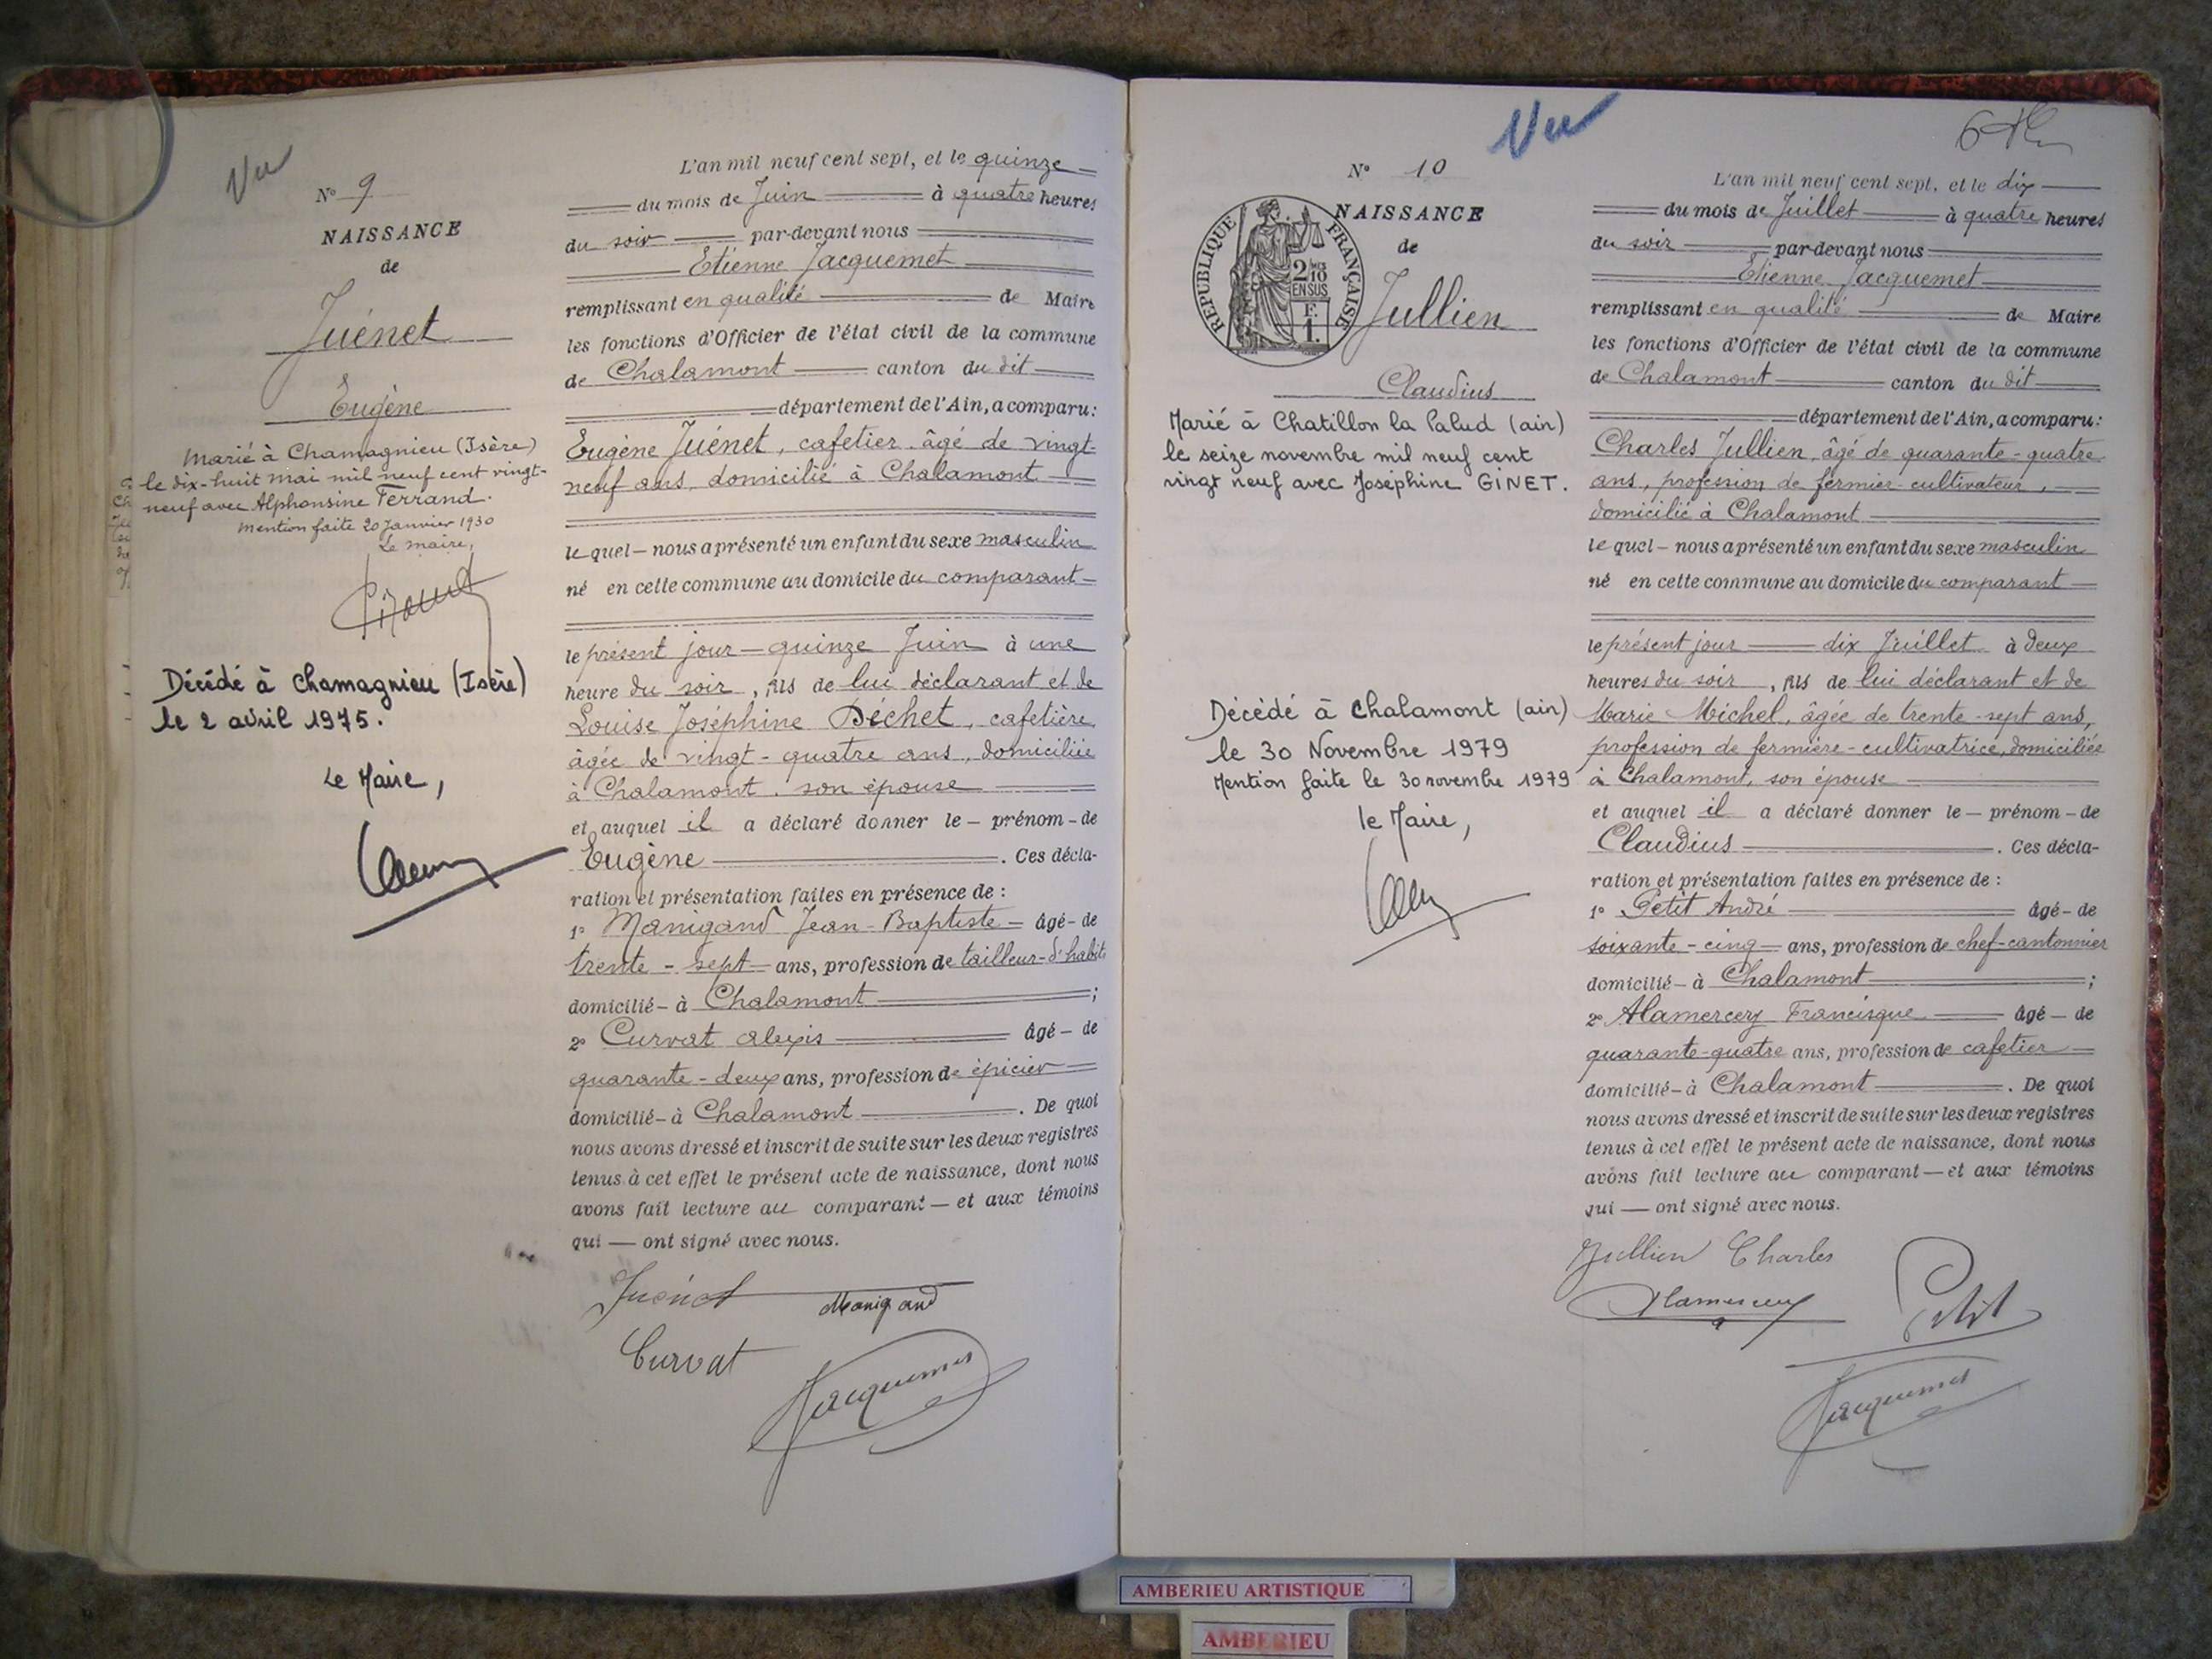 Vu
N° 9
NAISSANCE
de
Juénet
Eugène
Marié à Chamagnieu (Isère)
le dix-huit mai mil neuf cent vingt-
neuf avec Alphonsine Ferrand.
Mention faite 20 Janvier 1930
Le maire,
Décédé à Chamagnieu (Isère)
le 2 avril 1975.
Le Maire,
L'an mil neuf cent sept, et le quinze
du mois de Juin à quatre heures
du soir par-devant nous
Etienne Jacquemet
remplissant en qualité de Maire
les fonctions d'Officier de l'état civil de la commune
de Chalamont canton du dit
département de l'Ain, a comparu:
Eugène Juénet, cafetier, âgé de vingt-
neuf ans, domicilié à Chalamont
le quel – nous a présenté un enfant du sexe masculin
né en cette commune au domicile du comparant
le présent jour – quinze Juin à une
heure du soir, fils de lui déclarant et de
Louise Joséphine Déchet, cafetière,
âgée de vingt-quatre ans, domiciliée
à Chalamont, son épouse
et auquel il a déclaré donner le – prénom – de
Eugène. Ces décla-
ration et présentation faites en présence de :
1° Manigand Jean-Baptiste âgé – de
trente-sept ans, profession de tailleur-d'habits
domicilié – à Chalamont ;
2° Curvat alexis âgé – de
quarante-deux ans, profession de épicier
domicilié – à Chalamont. De quoi
nous avons dressé et inscrit de suite sur les deux registres
tenus à cet effet le présent acte de naissance, dont nous
avons fait lecture au comparant – et aux témoins
qui — ont signé avec nous.
Juénet Manigand
Curvat
Jacquemet
Vu
N° 10
NAISSANCE
de
REPUBLIQUE FRANÇAISE
2/10
EN SUS
F.
1.
Jullien
Claudius
Marié à Chatillon la Palud (ain)
le seize novembre mil neuf cent
vingt neuf avec Joséphine GINET.
Décédé à Chalamont (ain)
le 30 Novembre 1979
Mention faite le 30 novembre 1979
le Maire,
L'an mil neuf cent sept, et le dix
du mois de Juillet à quatre heures
du soir par-devant nous
Etienne Jacquemet
remplissant en qualité de Maire
les fonctions d'Officier de l'état civil de la commune
de Chalamont canton du dit
département de l'Ain, a comparu:
Charles Jullien, âgé de quarante-quatre
ans, profession de fermier-cultivateur,
domicilié à Chalamont
le quel – nous a présenté un enfant du sexe masculin
né en cette commune au domicile du comparant
le présent jour — dix Juillet à deux
heures du soir, fils de lui déclarant et de
Marie Michel, âgée de trente-sept ans,
profession de fermière-cultivatrice, domiciliée
à Chalamont, son épouse
et auquel il a déclaré donner le – prénom – de
Claudius. Ces décla-
ration et présentation faites en présence de :
1° Petit André âgé – de
soixante-cinq ans, profession de chef-cantonnier
domicilié – à Chalamont ;
2° Alamercery Francisque âgé – de
quarante-quatre ans, profession de cafetier
domicilié – à Chalamont. De quoi
nous avons dressé et inscrit de suite sur les deux registres
tenus à cet effet le présent acte de naissance, dont nous
avons fait lecture au comparant – et aux témoins
qui — ont signé avec nous.
Jullien Charles
Alamercery Petit
Jacquemet
AMBERIEU ARTISTIQUE
AMBERIEU